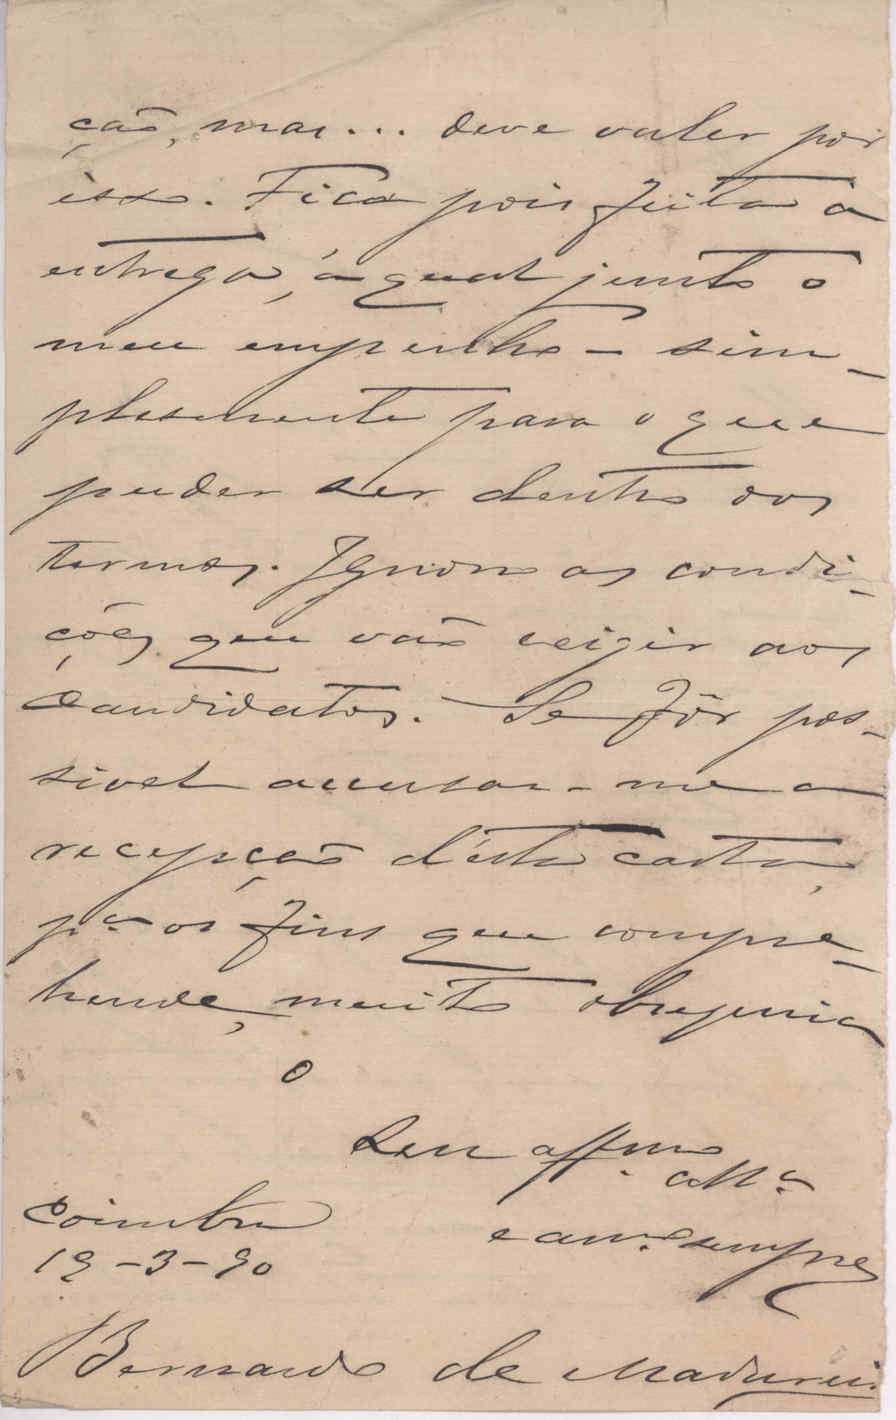 ção, mas... deve valer por
isso. Fica pois feita a
entrega, á qual junto o
meu empenho – sim-
plesmente para o que
puder ser dentro dos
termos. Ignoro as condi-
ções que vão exigir aos
candidatos. Se fôr pos-
sivel accusar-me a
recepção d'esta carta,
p.ª os fins que compre-
hende, muito obsequia
o
Seu aff.mo
e am.º sempre
Coimbra
19-3-90
Bernardo de Madurei